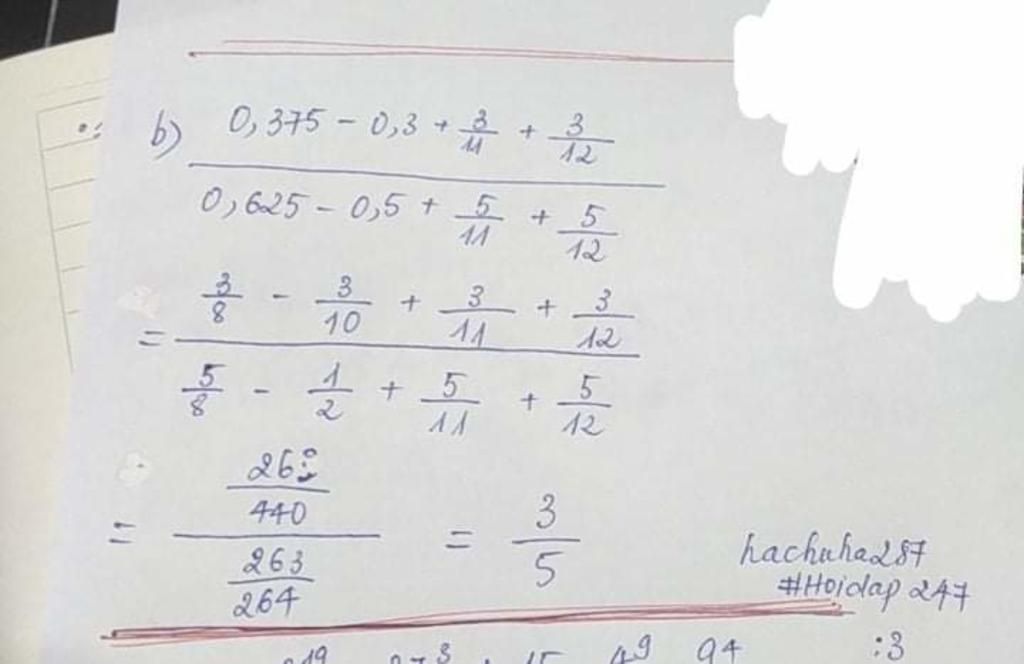 b) 0,375 - 0,3 + 3/11 + 3/12
0,625 - 0,5 + 5/11 + 5/12
= 3/8 - 3/10 + 3/11 + 3/12
5/8 - 1/2 + 5/11 + 5/12
= 263/440 = 3/5
263/264
hachuha287
#Hoidap 247
:3